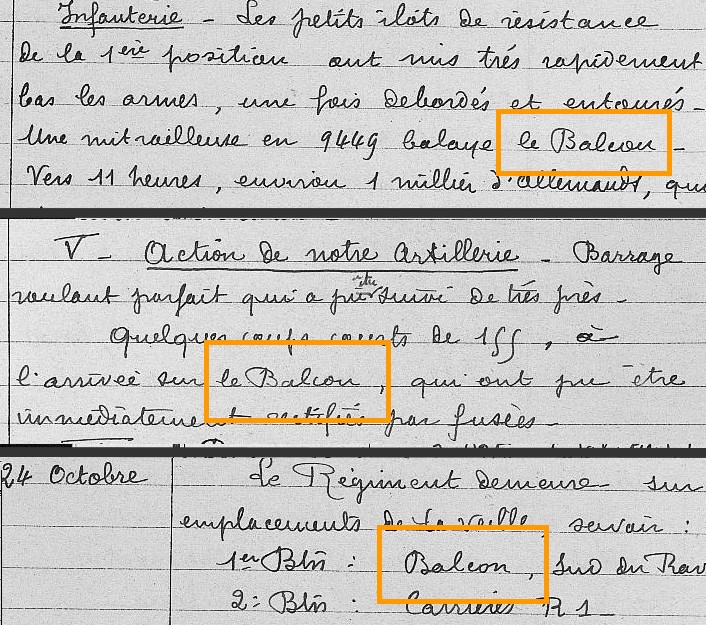 Infanterie - Les petits ilots de résistance
de la 1ère position ont mis trés rapidement
bas les armes, une fois debordés et entourés -
Une mitrailleuse en 9449 balaye le Balcon -
Vers 11 heures, environ 1 millier d'allemands, qui
V - Action de notre Artillerie - Barrage
roulant parfait qui a été suivi de trés près -
Quelques coups courts de 155, à
l'arrivée sur le Balcon, qui ont pu être
immediatement rectifiés par fusées -
24 Octobre Le Régiment demeure sur
emplacements de la veille, savoir :
1er Btn : Balcon, Sud du Rav
2e Btn : Carrières R 1 -